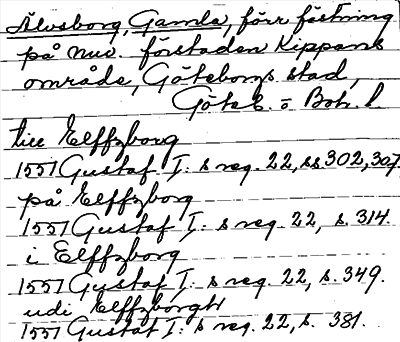 Älvsborg, Gamla, förr fästning
på nuv. förstaden Kippans
område, Göteborgs stad,
Göteb. o Boh. l.
till Elffzborg
1551 Gustaf I:s reg. 22, ss 302, 307
på Elffzborg
1551 Gustaf I:s reg. 22, s. 314.
i Elffzborg
1551 Gustaf I:s reg. 22, s. 349.
udi Elffzborgh
1551 Gustaf I:s reg. 22, s. 381.